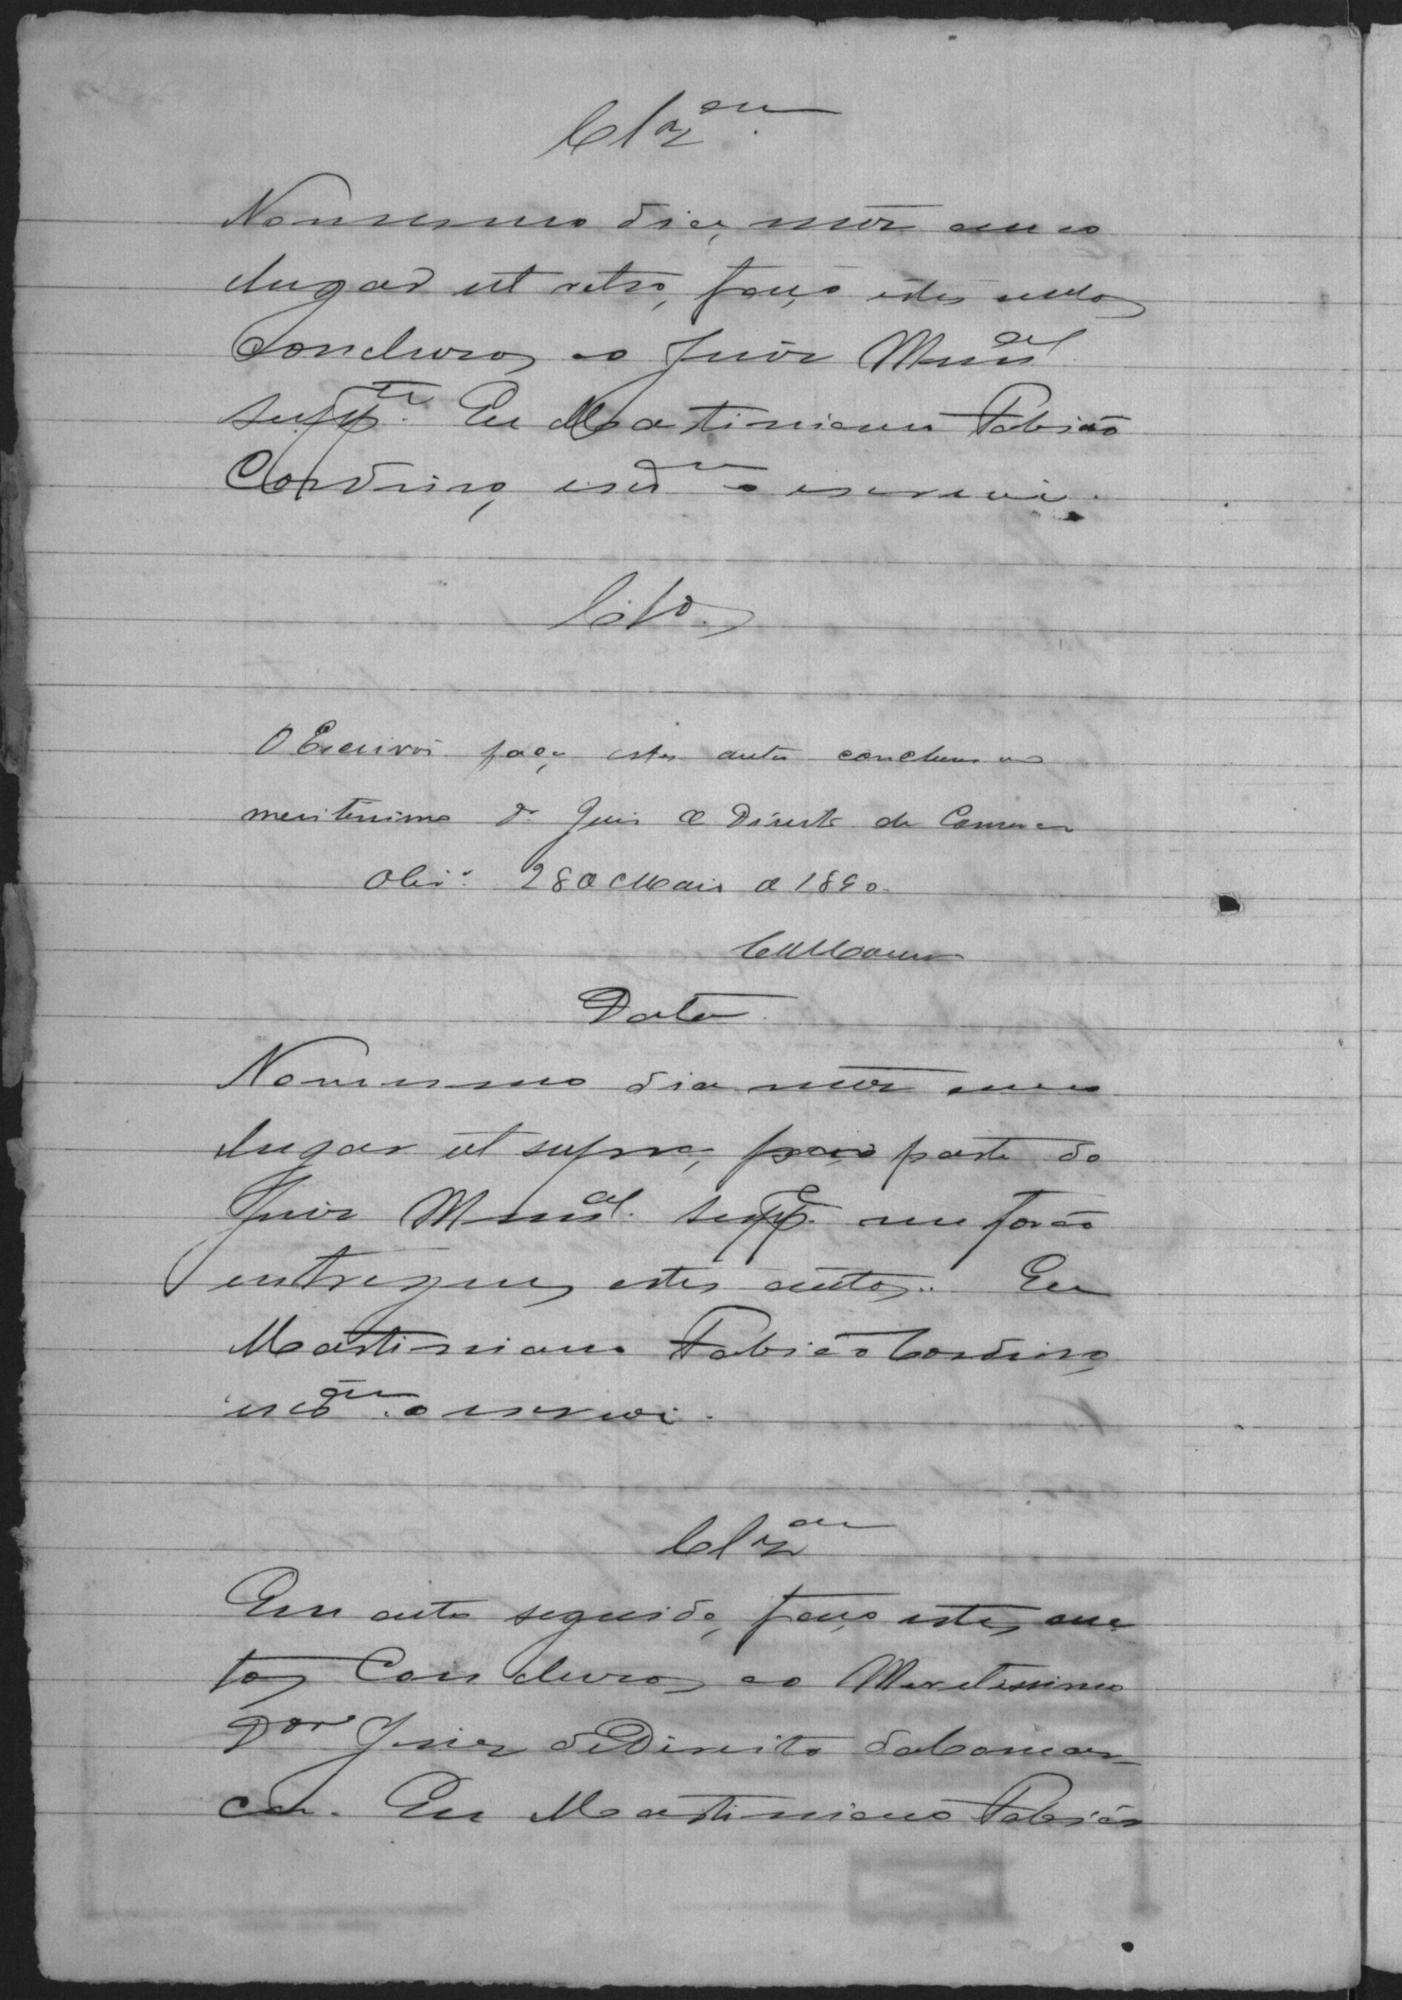 Clzam
No mesmo dia, mez anno
lugar ut retro, faço estes autos
Concluzos ao Juiz Munal
suppte. Eu Martiniano Fabião
Cordeiro, escram o escrevi.
Clos.
O Escrivão faça estes autos conclusos ao
meritissimo Dr Juiz de Direito da Comarca
28 de Maio de 1890.
Data
No mesmo dia mez anno
lugar ut supra, por parte do
Juiz Munal. supp.e me forão
entregues estes autos. Eu
Martiniano Fabião Cordeiro,
escram. o escrevi.
Clzam
Em acto seguido, faço estes au
tos Concluzos ao Meretissimo
Dor Juiz de Direito da Comar-
ca. Eu Martiniano Fabião